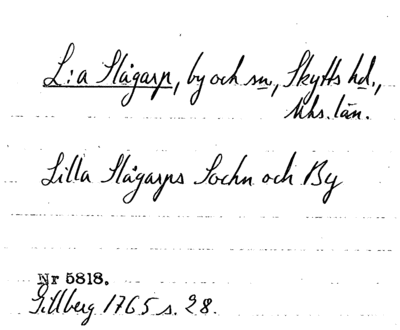 L:a Slågarp, by och sn, Skytts hd.,
Mhs. län.
Lilla Slågarps Sochn och By
Nr 5818.
Gillberg 1765 s. 28.